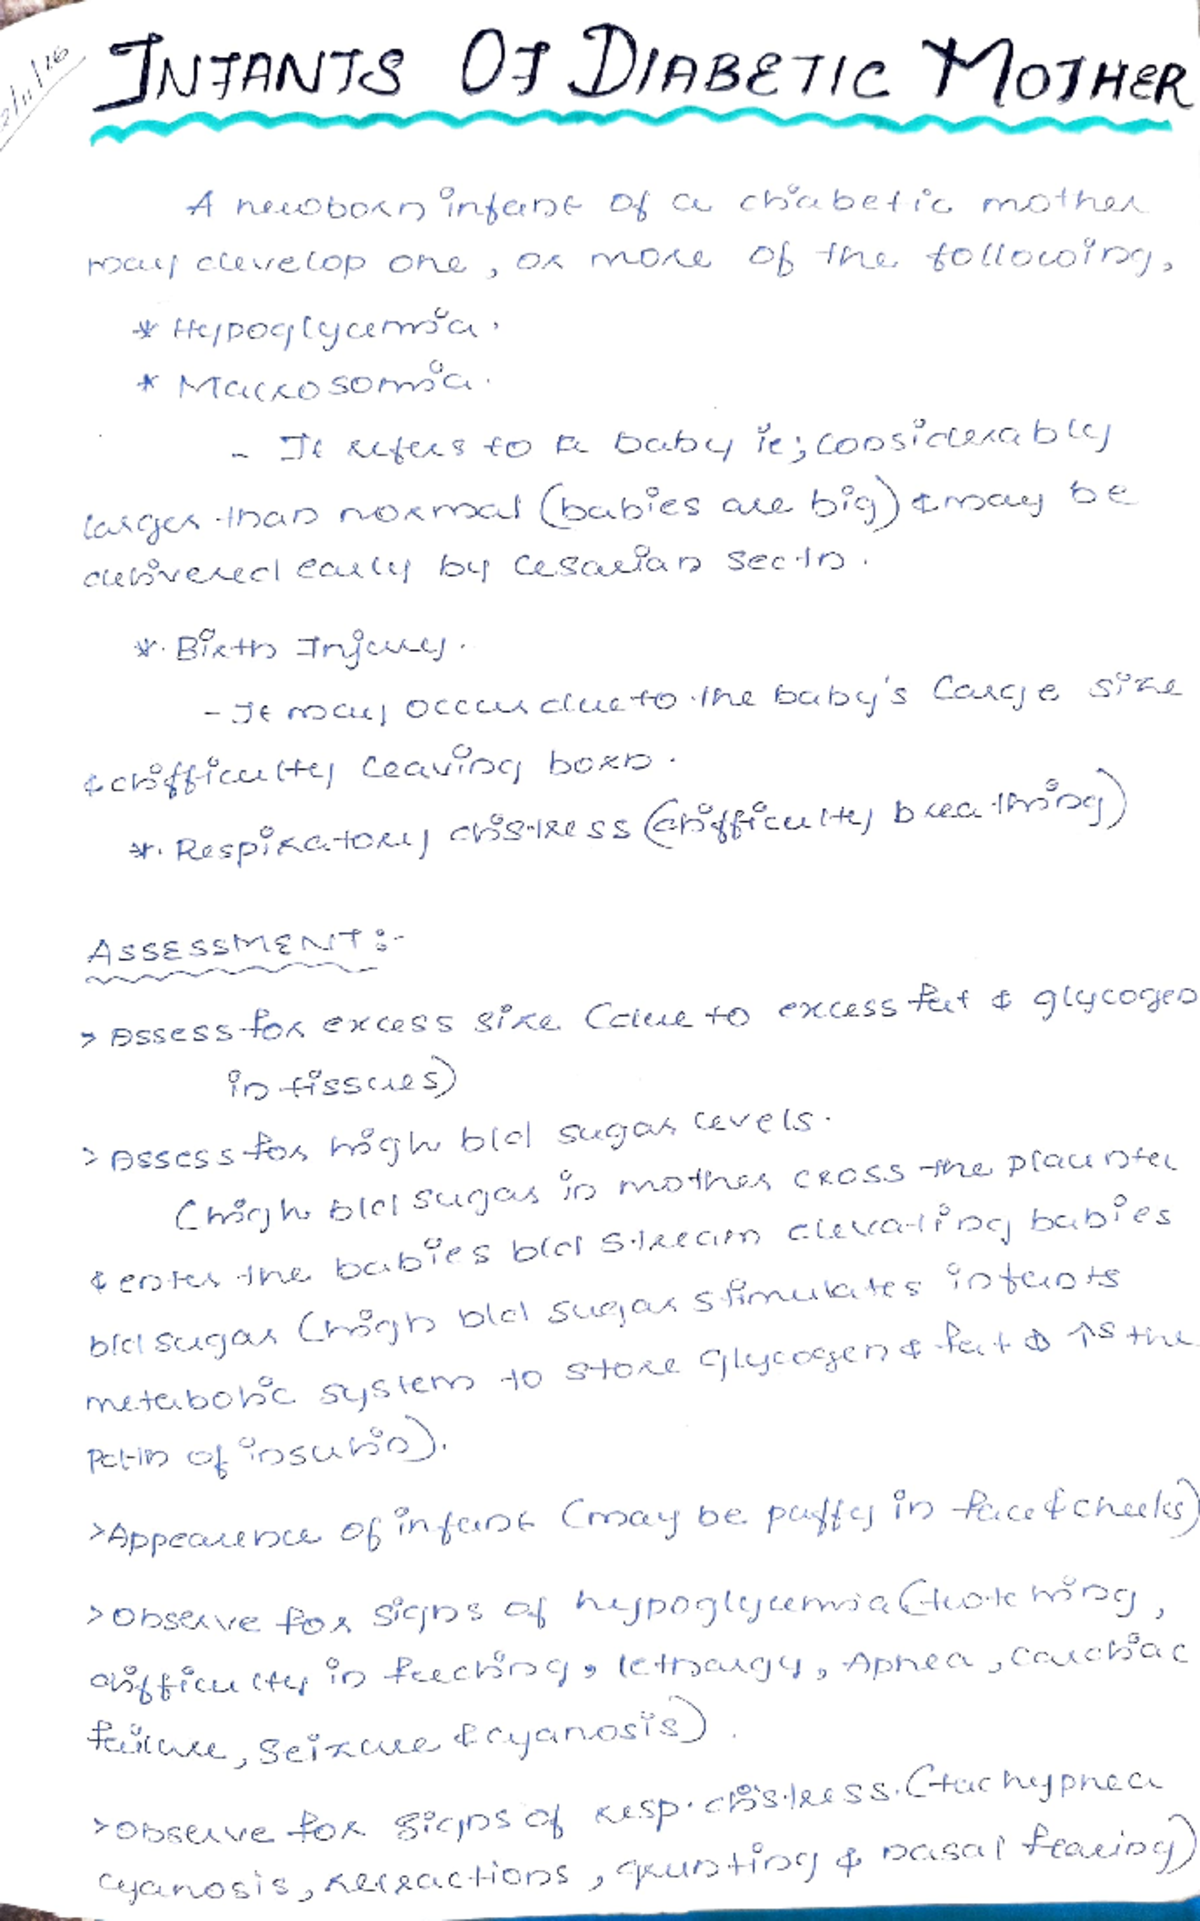 2/11/16
INFANTS OF DIABETIC MOTHER
A newborn infant of a diabetic mother
may develop one, or more of the following,
* Hypoglycemia.
* Macrosomia.
- It refers to a baby ie; considerably
larger than normal (babies are big) & may be
delivered early by Cesarian sectn.
*. Birth Injury.
- It may occur due to the baby's large size
& difficulty leaving born.
*. Respiratory distress (difficulty breathing)
ASSESSMENT :-
> Assess for excess size (due to excess fat & glycogen
in tissues)
> Assess for high bld sugar levels.
(high bld sugar in mother cross the placenta
& enter the babies bld stream elevating babies
bld sugar (high bld sugar stimulates infants
metabolic system to store glycogen & fat & ↑s the
Pdtn of insulin).
> Appearence of infant (may be puffy in face & cheeks)
> Observe for signs of hypoglycemia (twitching,
difficulty in feeding, lethargy, Apnea, cardiac
failure, seizure & cyanosis).
> Observe for signs of resp. distress. (tachypnea
cyanosis, retractions, grunting & nasal flearing)